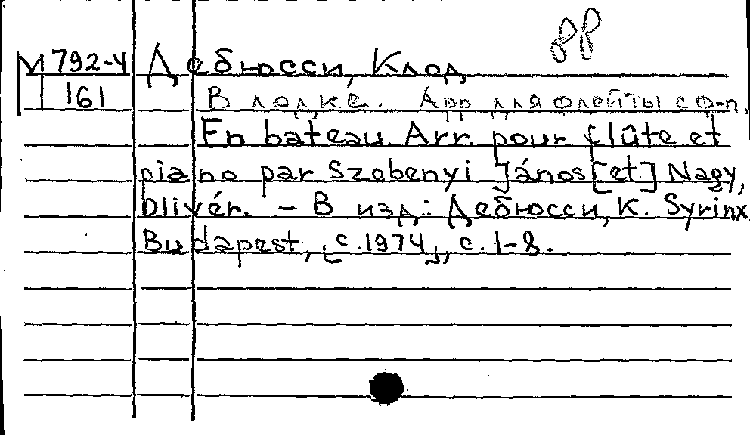 88
М 792-4 Дебюсси, Клод
161 В лодке. Арр. для флейты с ф-п.
En bateau. Arr. pour flûte et
piano par Szebenyi János [et] Nagy,
Olivér. – В изд.: Дебюсси, К. Syrinx
Budapest, [с.1974], с. 1-8.